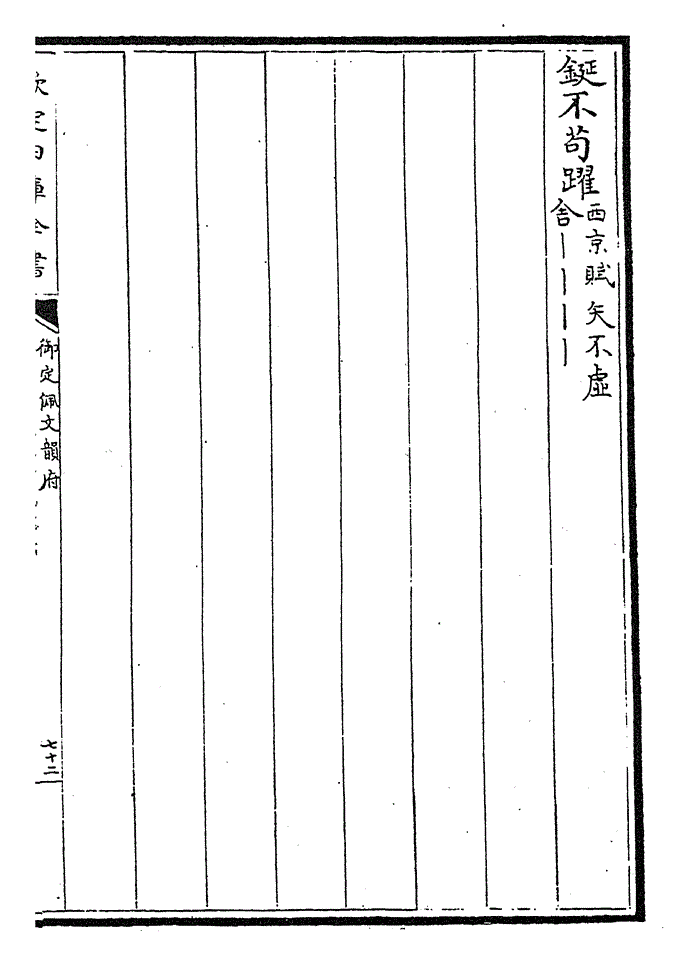 鋋不苟躍西京賦矢不虛
舍｜｜｜｜
欽定四庫全書
御定佩文韻府
七十二